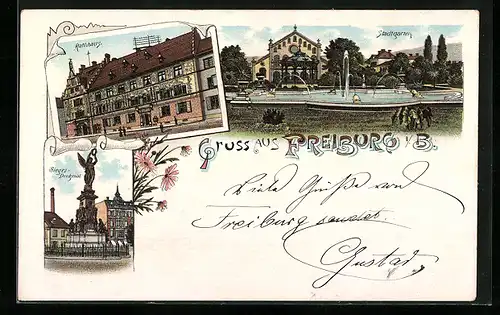 Rathhaus.
Stadtgarten
Sieges-
Denkmal
GRUSS AUS FREIBURG i/B.
Viele Grüße von
Freiburg sendet
Gustav